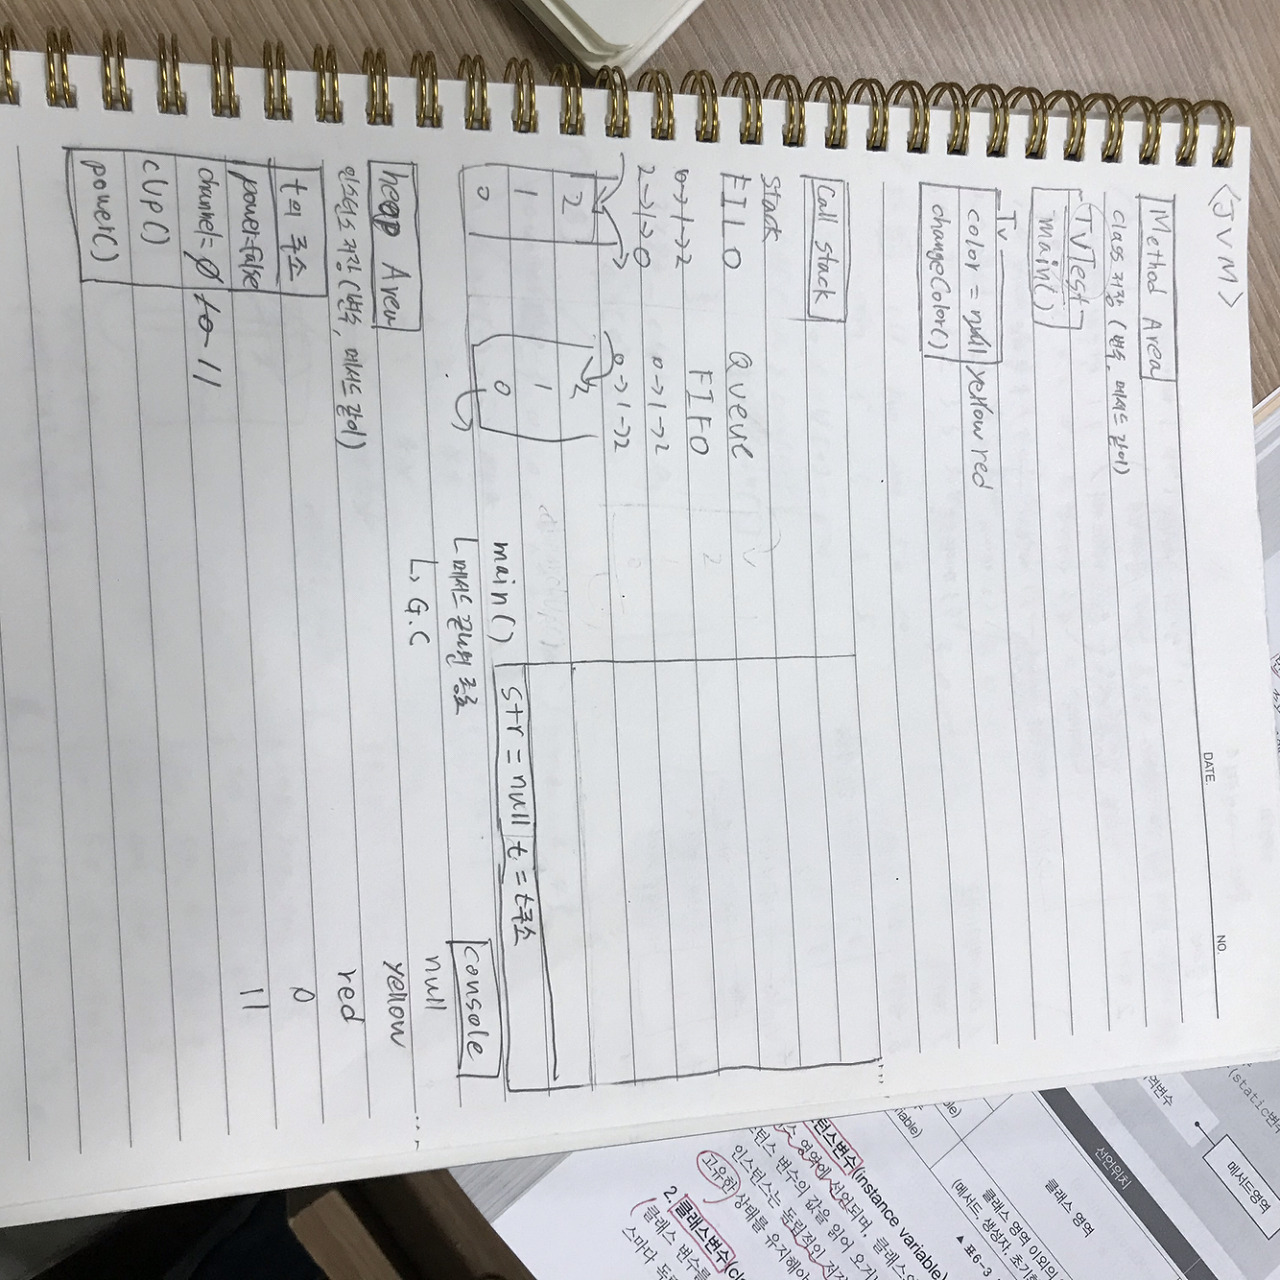 <JVM>
DATE.
NO.
Method Area
class 저장 (변수, 메서드 같이)
TVTest
main()
Tv
color = null yellow red
changeColor()
Call stack
stack
FILO
0→1→2
2→1→0
2
1
0
Queue
FIFO
0→1→2
0→1→2
2
1
0
main()
str = null t = t주소
L 메서드 끝나면 종료
L, G.C
heap Area
인스턴스 저장 (변수, 메서드 같이)
t의 주소
power=false
channel= 0 to 11
power()
console
null
yellow
red
0
11
메서드영역
선언위치
클래스 영역
클래스 영역 이외의
(메서드, 생성자, 초기
▲ 표6-3
턴스변수(instance variable)
영역에 선언되며, 클래스의
턴스 변수의 값을 읽어 오거
인스턴스는 독립적인 저장
고유한 상태를 유지해야
2. 클래스변수(cl
클래스 변수를
스마다 독